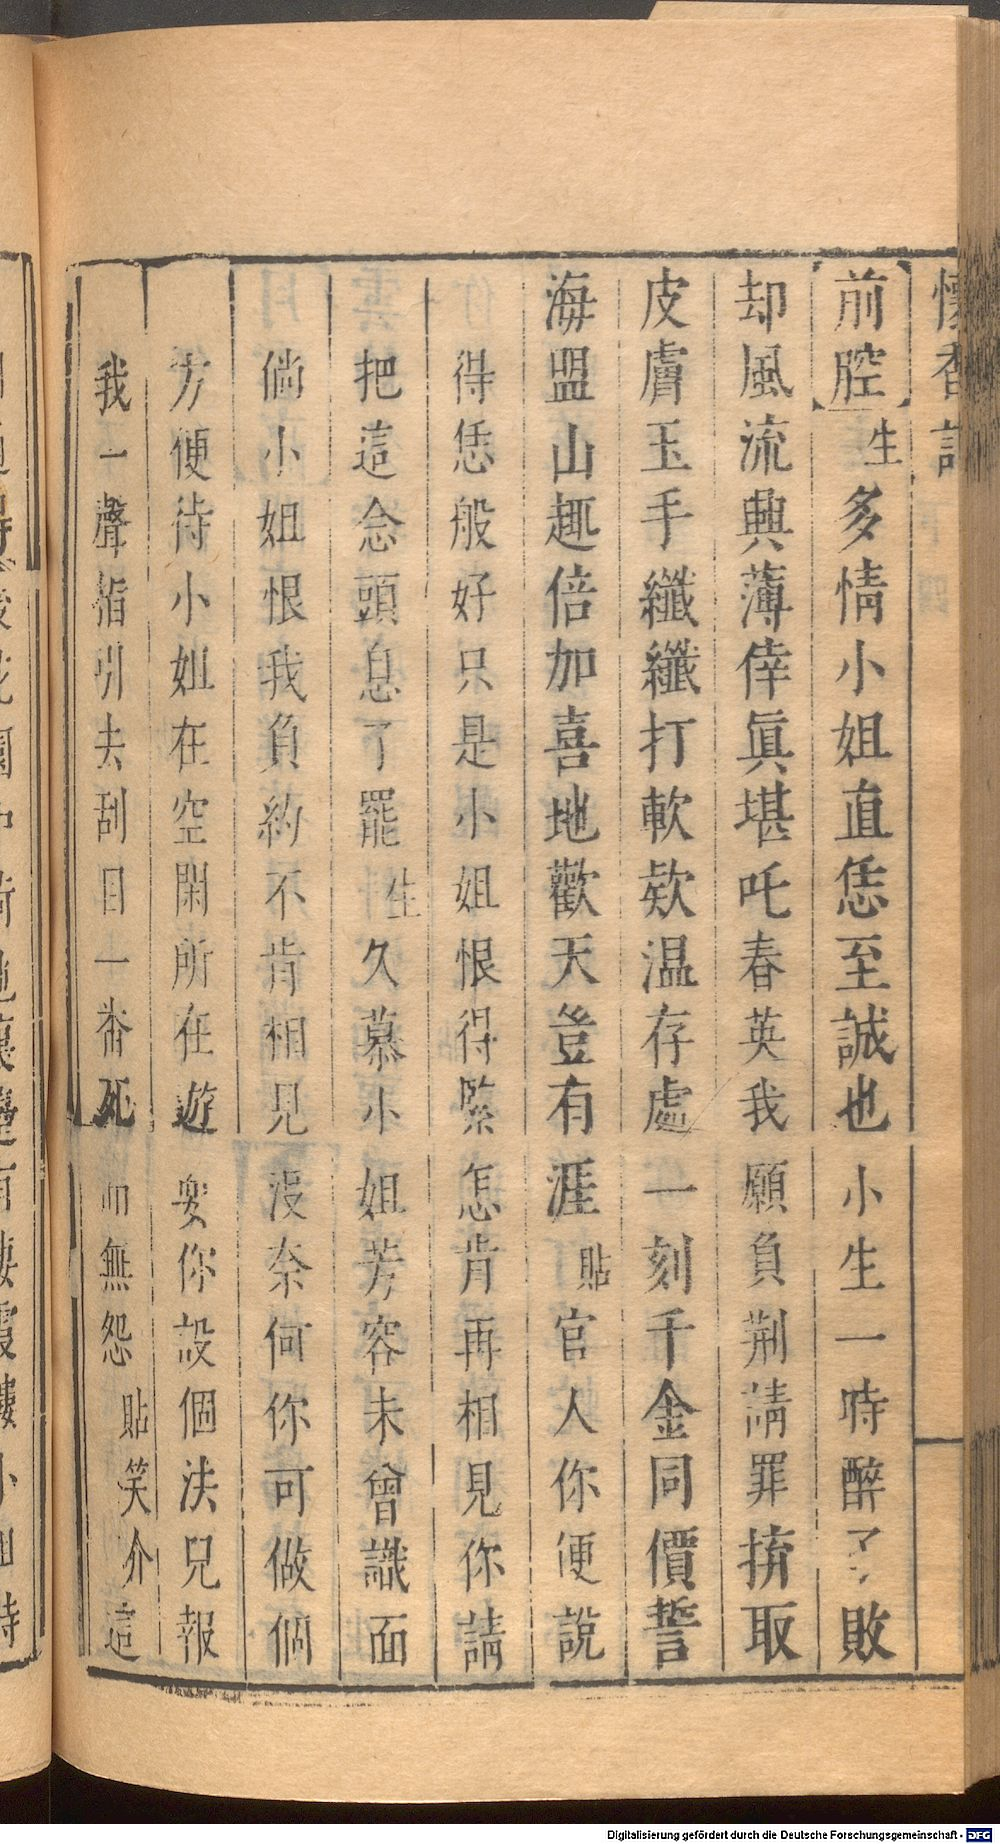 懷香記
前腔生多情小姐直恁至誠也小生一時醉了敗
却風流興薄倖眞堪吒春英我願負荆請罪拚取
皮膚玉手纖纖打軟欵温存處一刻千金同價誓
海盟山趣倍加喜地歡天豈有涯貼官人你便說
得恁般好只是小姐恨得緊怎肯再相見你請
把這念頭息了罷生久慕小姐芳容未曾識面
倘小姐恨我負約不肯相見沒奈何你可做個
方便待小姐在空閑所在遊耍你設個法兒報
我一聲指引去刮目一番死而無怨貼笑介這
Digitalisierung gefördert durch die Deutsche Forschungsgemeinschaft - DFG